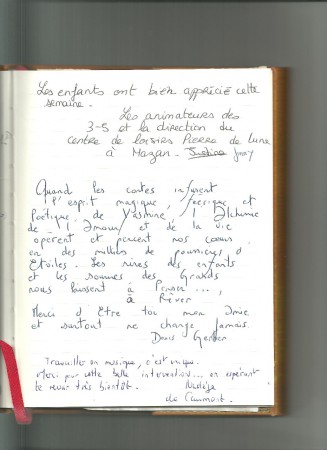 Les enfants ont bien apprécié cette
semaine.
Les animateurs des
3-5 et la direction du
centre de loisirs Pierre de lune
à Mazan.
Quand les contes infusent
l'esprit magique, féerique et
Poétique de Yasmine, l'Alchimie
de l'Amour et de la vie
opèrent et percent nos coeurs
en des milliers de poussières d'
Etoiles. Les rires des enfants
et les sourires des Grands
nous laissent à Penser...,
à Rêver
Merci d'Etre toi mon Amie
et surtout ne change Jamais.
Denis Gerber
Travailler en musique, c'est unique.
Merci pour cette belle intervention... en espérant
te revoir très bientôt.
de Caumont.